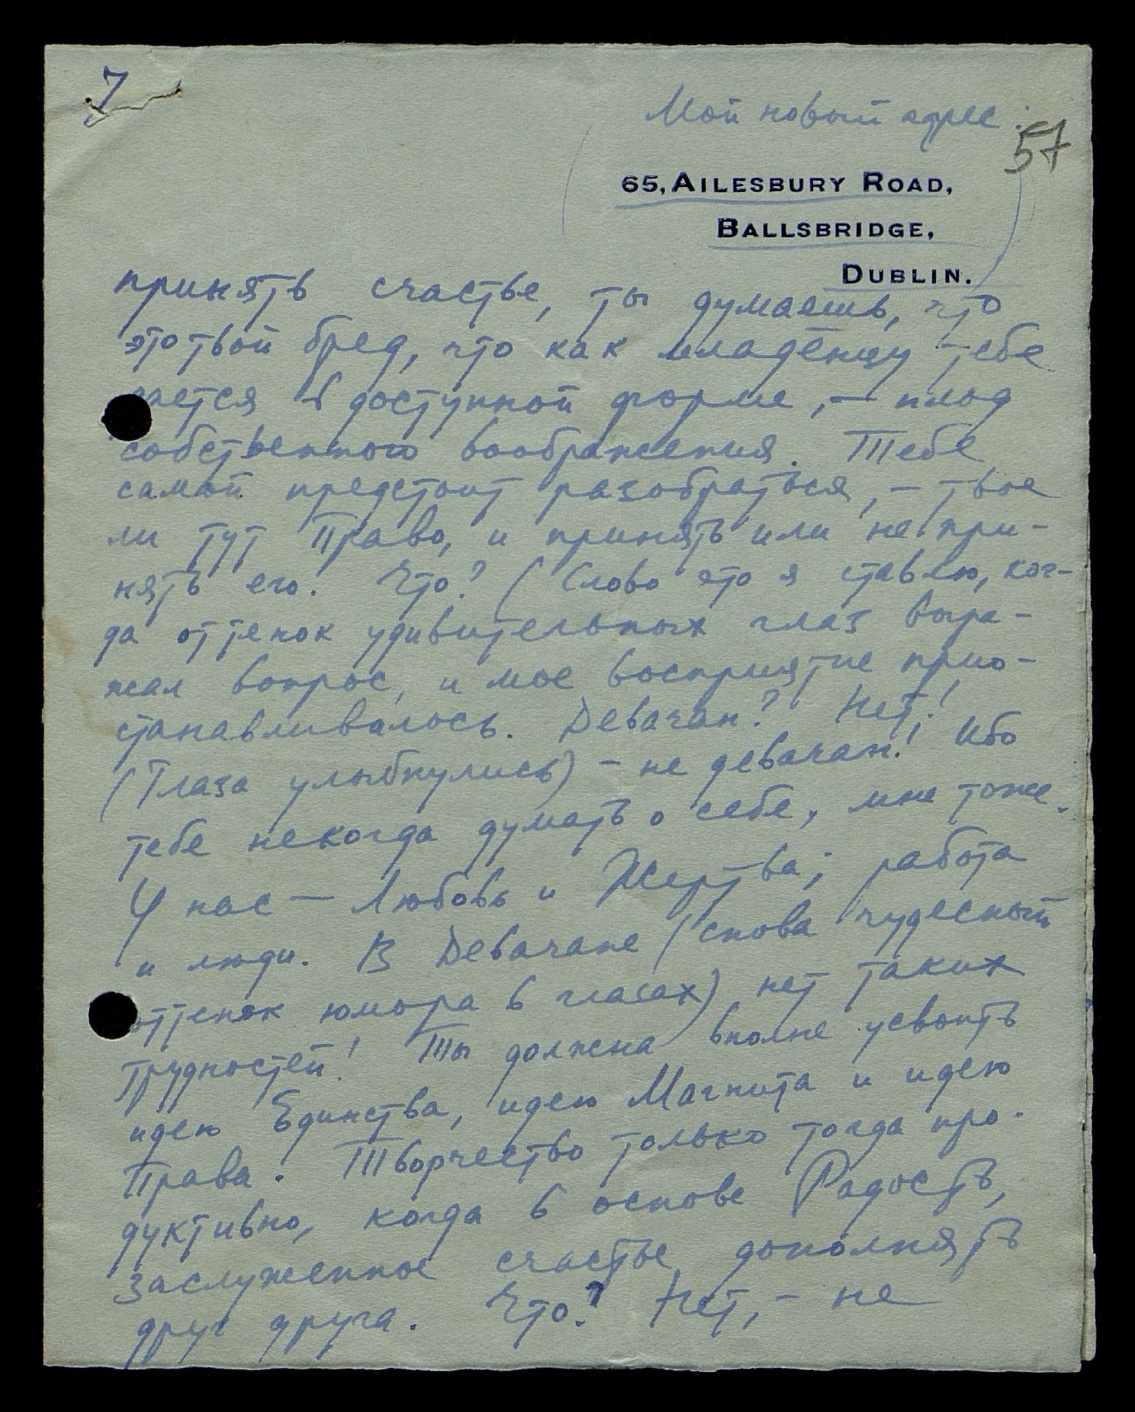 7
Мой новый адрес:
57
65, AILESBURY ROAD,
BALLSBRIDGE,
DUBLIN.
принять счастье, ты думаешь, что
это твой бред, что как младенцу тебе
дается в доступной форме, – плод
собственного воображения. Тебе
самой предстоит разобраться, – твое
ли тут Право, и принять или не при-
нять его. Что? (Слово это я ставлю, ког-
да оттенок удивительных глаз выра-
жал вопрос, и мое восприятие прио-
станавливалось. Девачан? Нет!
(Глаза улыбнулись) – не девачан! Ибо
тебе некогда думать о себе, мне тоже.
У нас – Любовь и Жертва; работа
и люди. В Девачане (снова чудесный
оттенок юмора в глазах) нет таких
трудностей! Ты должна вполне усвоить
идею Единства, идею Магнита и идею
Права. Творчество только тогда про-
дуктивно, когда в основе Радость,
заслуженное счастье дополнять
друг друга. Что? Нет, – не